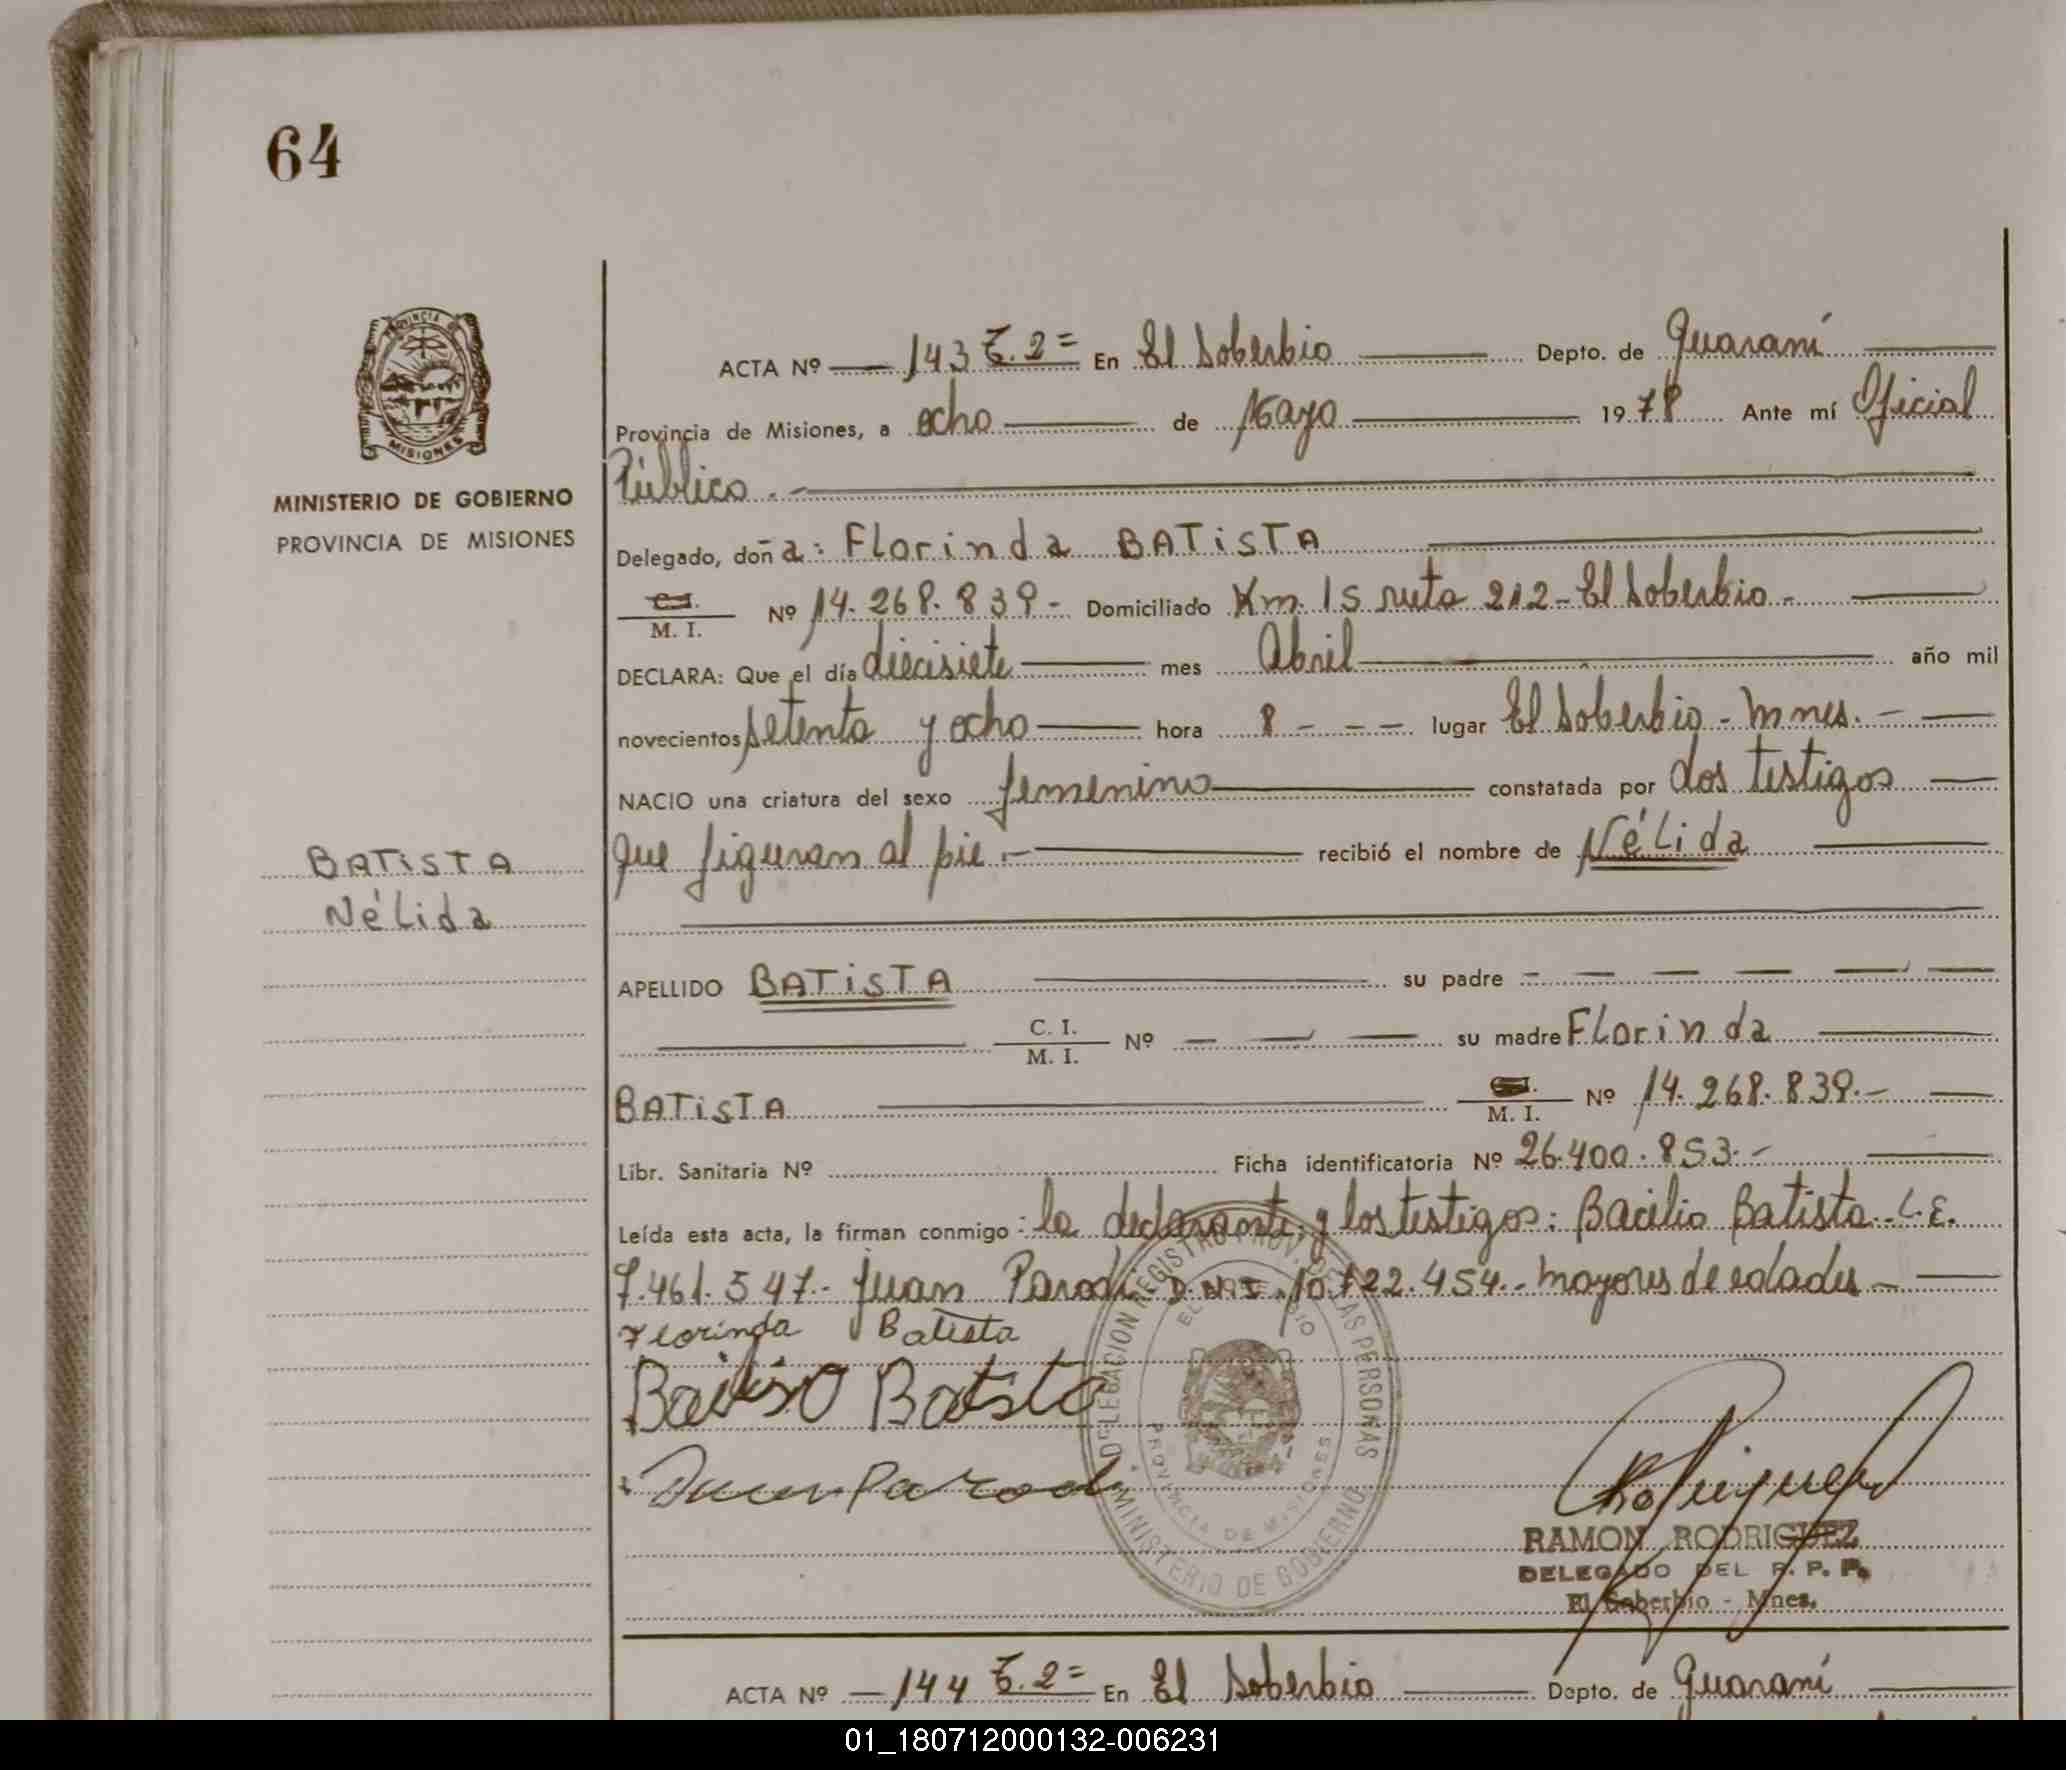 64
PROVINCIA DE
MISIONES
MINISTERIO DE GOBIERNO
PROVINCIA DE MISIONES
BATISTA
Nélida
ACTA Nº — 143 T. 2= En El Soberbio — Depto. de Guaraní —
Provincia de Misiones, a ocho — de Mayo — 1978 Ante mí Oficial
Público. —
Delegado, doña: Florinda BATISTA —
C.I. / M. I. Nº 14.268.839- Domiciliado Km. 15 ruta 212 - El Soberbio - —
DECLARA: Que el día diecisiete — mes Abril — año mil
novecientos setenta y ocho — hora 8 - - - lugar El Soberbio - Mnes. - —
NACIO una criatura del sexo femenino — constatada por dos testigos —
que figuran al pie. — recibió el nombre de Nélida —
APELLIDO BATISTA — su padre — — — — — —
— C. I. / M. I. Nº — — — su madre Florinda —
BATISTA — C.I. / M. I. Nº 14.268.839.- —
Libr. Sanitaria Nº Ficha identificatoria Nº 26.400.853.- —
Leída esta acta, la firman conmigo: la declarante, y los testigos: Bacilio Batista.- L.E.
7.461.547.- Juan Parodi - D.N.I. 10.122.454.- mayores de edades - —
Florinda Batista
Basiliso Batista
Juan Parodi
DELEGACION REGISTRO PROV. DE LAS PERSONAS
EL SOBERBIO
PROVINCIA DE MISIONES
MINISTERIO DE GOBIERNO
RAMON RODRIGUEZ
DELEGADO DEL R. P. P.
El Soberbio - Mnes.
ACTA Nº — 144 T. 2= En El Soberbio — Depto. de Guaraní —
01_180712000132-006231